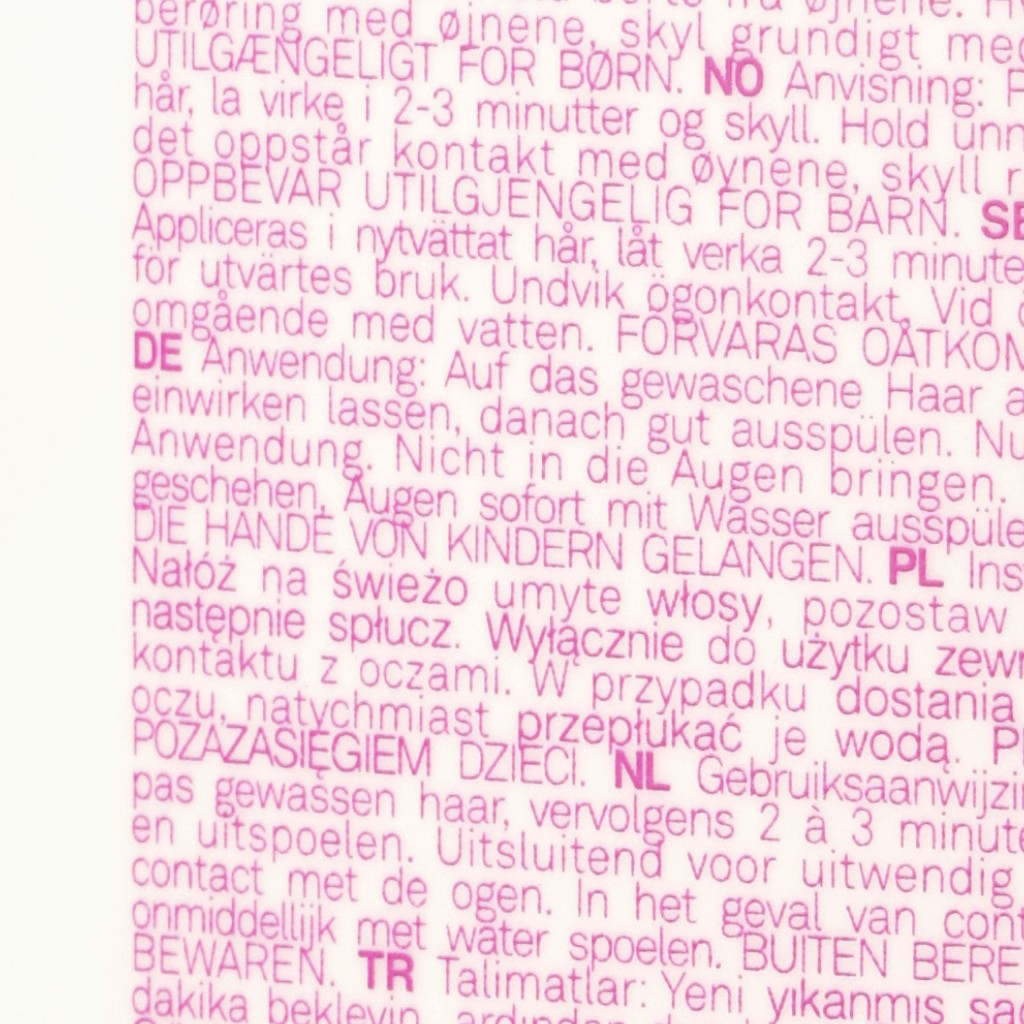 berøring med øjnene, skyl grundigt med
UTILGÆNGELIGT FOR BØRN. NO Anvisning:
hår, la virke i 2-3 minutter og skyll. Hold
det oppstår kontakt med øynene, skyll
OPPBEVAR UTILGJENGELIG FOR BARN. SE
Appliceras i nytvättat hår, låt verka 2-3
för utvärtes bruk. Undvik ögonkontakt. Vid
omgående med vatten. FÖRVARAS OÅTKOM
DE Anwendung: Auf das gewaschene Haar
einwirken lassen, danach gut ausspülen.
Anwendung. Nicht in die Augen bringen.
geschehen, Augen sofort mit Wasser ausspüle
DIE HÄNDE VON KINDERN GELANGEN. PL Ins
Nałóż na świeżo umyte włosy, pozostaw
następnie spłucz. Wyłącznie do użytku zewn
kontaktu z oczami. W przypadku dostania
oczu, natychmiast przepłukać je wodą.
POZAZASIĘGIEM DZIECI. NL Gebruiksaanwijzi
pas gewassen haar, vervolgens 2 à 3 minute
en uitspoelen. Uitsluitend voor uitwendig
contact met de ogen. In het geval van cont
onmiddellijk met water spoelen. BUITEN BERE
BEWAREN. TR Talimatlar: Yeni yıkanmış saç
dakika bekleyin, ardından